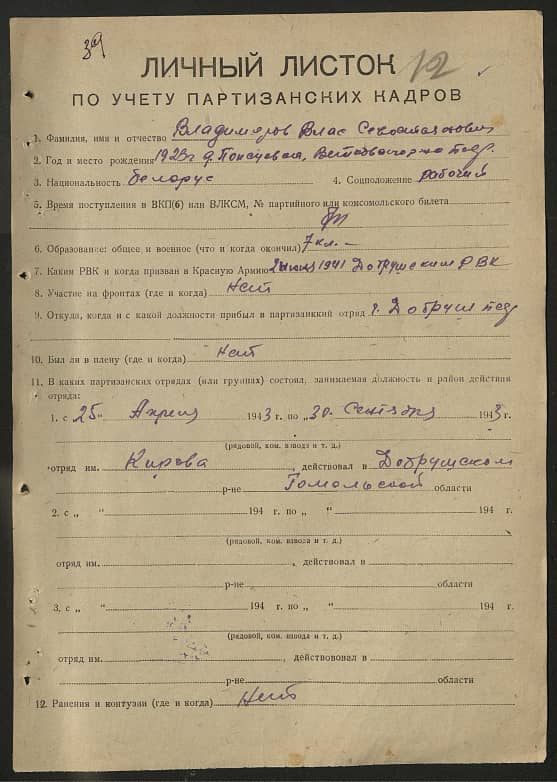 39
ЛИЧНЫЙ ЛИСТОК 12
ПО УЧЕТУ ПАРТИЗАНСКИХ КАДРОВ
1. Фамилия, имя и отчество Владимиров Влас Севостьянович
2. Год и место рождения 1923г д.
3. Национальность белорус 4. Соцположение рабочий
5. Время поступления в ВКП(б) или ВЛКСМ, № партийного или комсомольского билета
бп
6. Образование: общее и военное (что и когда окончил) 7 кл. —
7. Каким РВК и когда призван в Красную Армию 1941 Добрушским РВК
8. Участие на фронтах (где и когда) Нет
9. Откуда, когда и с какой должности прибыл в партизанский отряд г. Добруш
10. Был ли в плену (где и когда) Нет
11. В каких партизанских отрядах (или группах) состоял, занимаемая должность и район действия
отряда:
1. с 25 Апреля 1943 г. по „30„ Сентября 1943 г.
(рядовой, ком. взвода и т. д.)
отряд им. Кирова, действовал в Добрушском
р-не Гомельской области
2. с „ “ 194 г. по „ “ 194 г.
(рядовой, ком. взвода и т. д.)
отряд им. , действовал в
р-не области
3. с „ “ 194 г. по „ “ 194 г.
(рядовой, ком. взвода и т. д.)
отряд им. , действововал в
р-не области
12. Ранения и контузии (где и когда) Нет